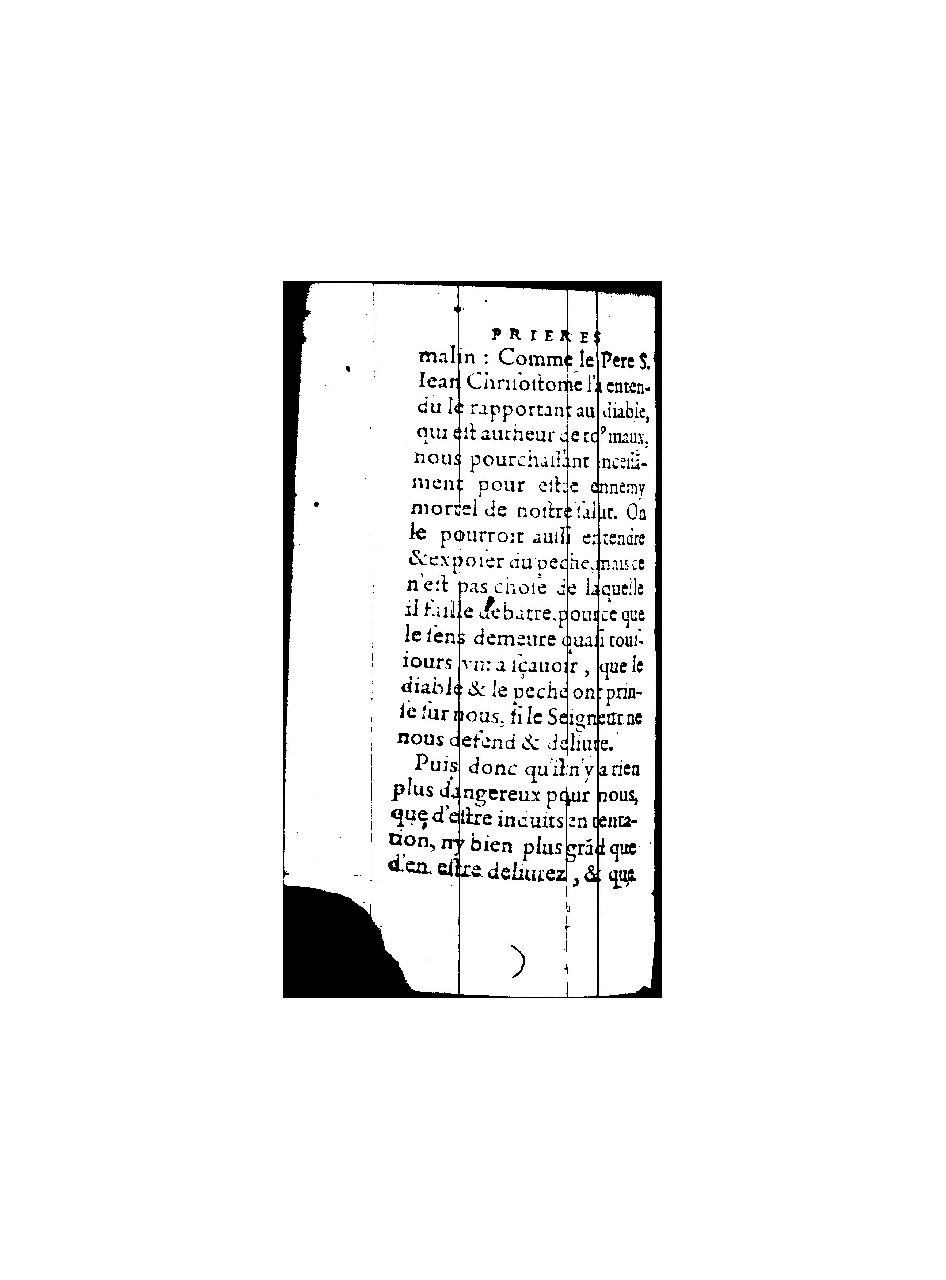 PRIERES
malin : Comme le Pere S.
Iean Chriſoſtome l'a enten-
du le rapportant au diable,
qui eſt autheur de to⁹ maux,
nous pourchaſſant inceſſa-
ment pour eſtre ennemy
mortel de noſtre ſalut. On
le pourroit auſſi entendre
& expoſer du peché, mais ce
n'eſt pas choſe de laquelle
il faille debatre, pource que
le ſens demeure quaſi touſ-
iours vn: a ſçauoir, que le
diable & le peché ont prin-
ſe ſur nous, ſi le Seigneur ne
nous defend & deliure.
Puis donc qu'il n'y a rien
plus dangereux pour nous,
que d'eſtre induits en tenta-
tion, ny bien plus grād que
d'en eſtre deliurez, & que